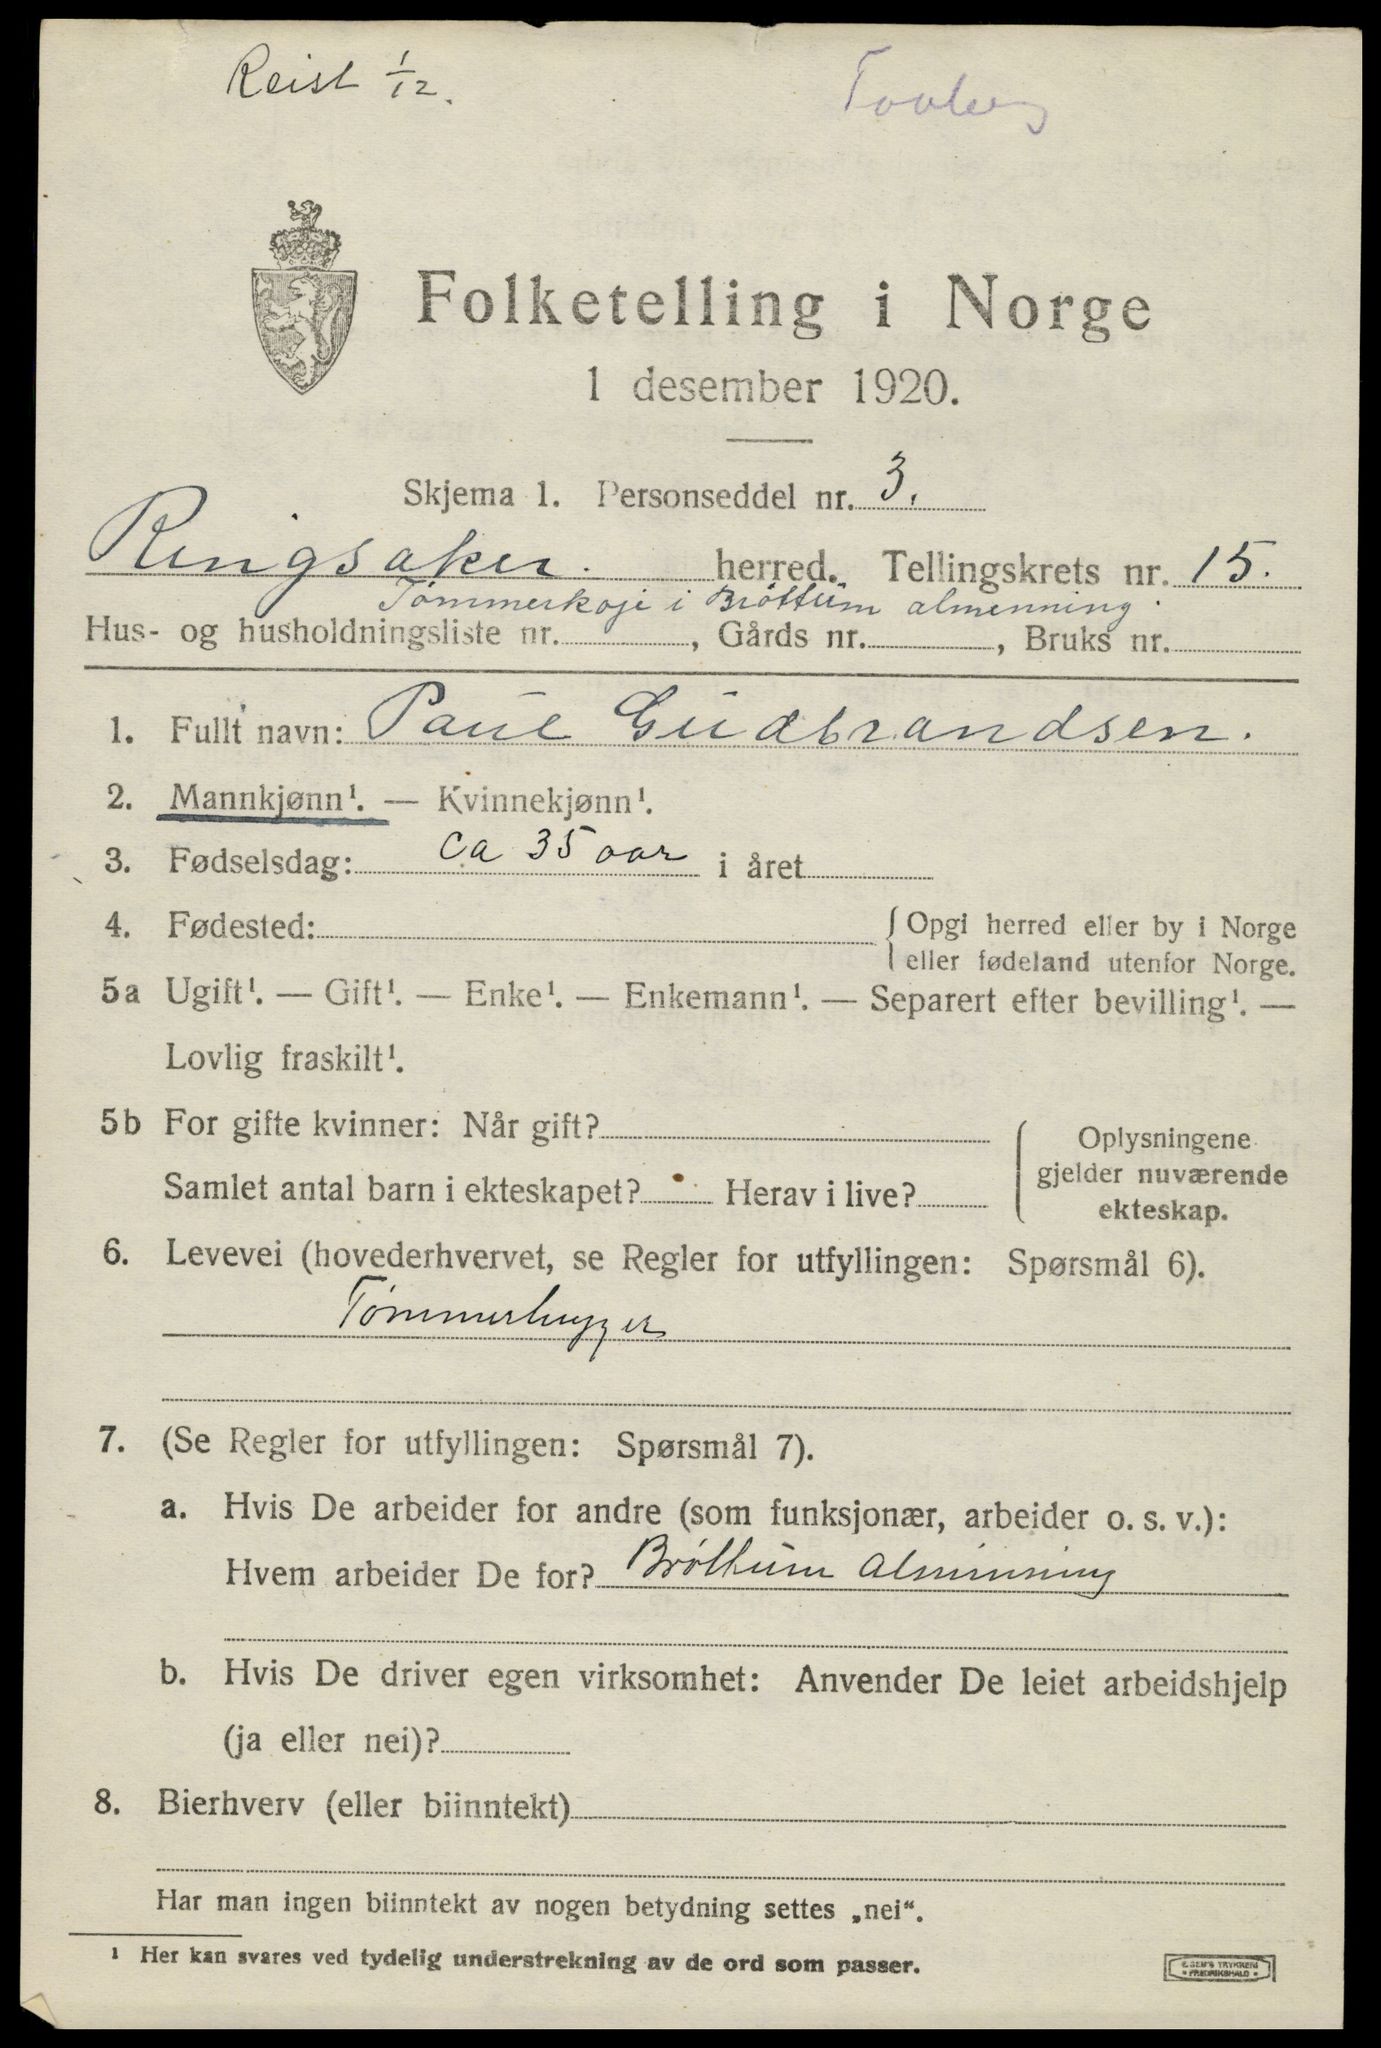 Reist 1/12.
Folketelling i Norge
1 desember 1920.
Skjema 1. Personseddel nr. 3.
Ringsaker. herred. Tellingskrets nr. 15.
Tømmerkoje i Brøttum almenning.
Hus- og husholdningsliste nr. , Gårds nr. , Bruks nr.
1. Fullt navn: Paul Gudbrandsen.
2. Mannkjønn¹. — Kvinnekjønn¹.
3. Fødselsdag: ca 35 aar i året
4. Fødested: { Opgi herred eller by i Norge
eller fødeland utenfor Norge.
5a Ugift¹. — Gift¹. — Enke¹. — Enkemann¹. — Separert efter bevilling¹. —
Lovlig fraskilt¹.
5b For gifte kvinner: Når gift?
Samlet antal barn i ekteskapet? Herav i live?
Oplysningene
gjelder nuværende
ekteskap.
6. Levevei (hovederhvervet, se Regler for utfyllingen: Spørsmål 6).
Tømmerhugger
7. (Se Regler for utfyllingen: Spørsmål 7).
a. Hvis De arbeider for andre (som funksjonær, arbeider o. s. v.):
Hvem arbeider De for? Brøttum Almenning
b. Hvis De driver egen virksomhet: Anvender De leiet arbeidshjelp
(ja eller nei)?
8. Bierhverv (eller biinntekt)
Har man ingen biinntekt av nogen betydning settes „nei“.
¹ Her kan svares ved tydelig understrekning av de ord som passer.
FREDRIKSHALD